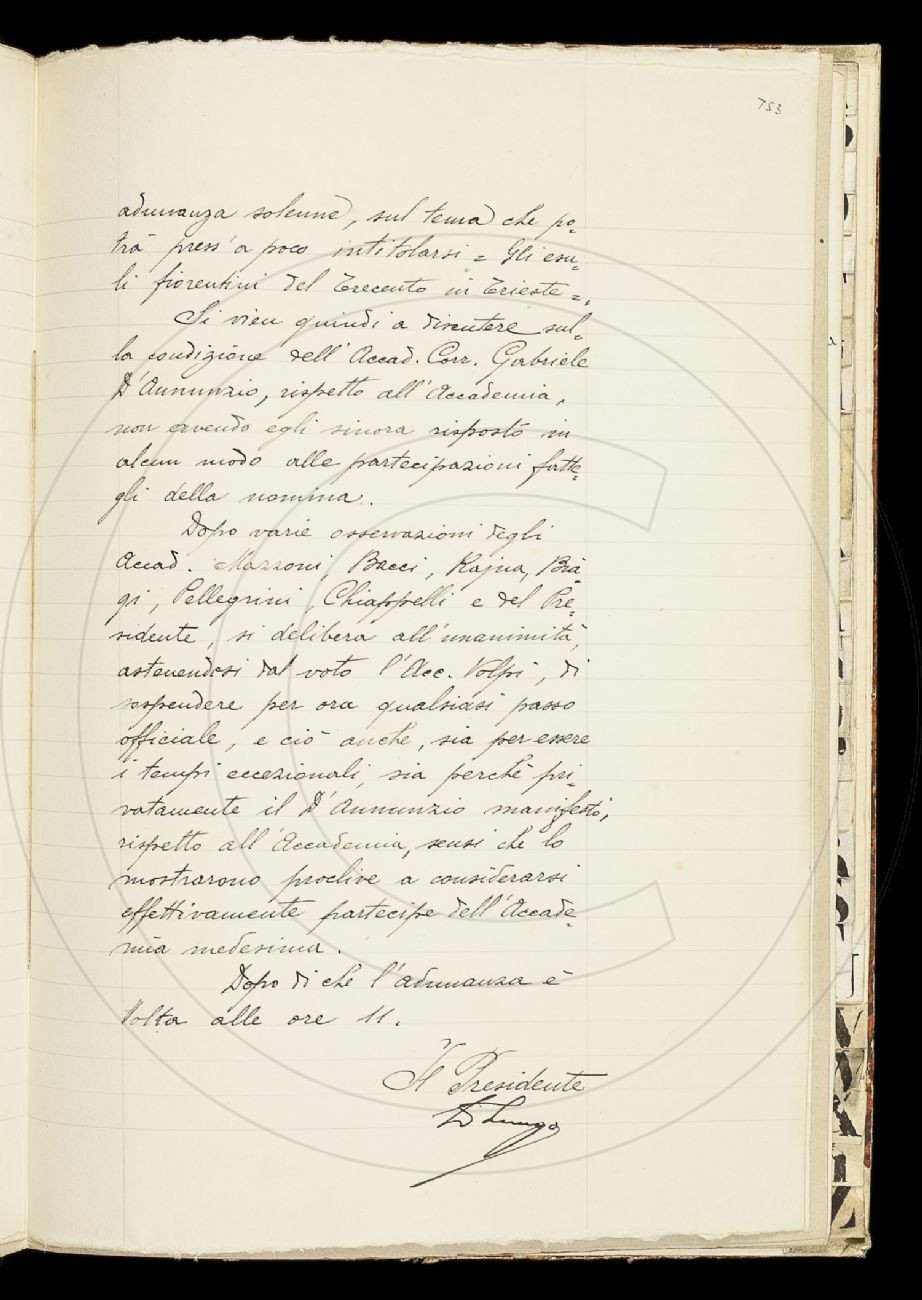 753
adunanza solenne, sul tema che po=
trà press'a poco intitolarsi = Gli esu=
li fiorentini del Trecento in Trieste =.
Si vien quindi a discutere sul=
la condizione dell'Accad. Corr. Gabriele
D'Annunzio, rispetto all'Accademia,
non avendo egli sinora risposto in
alcun modo alle partecipazioni fatte=
gli della nomina.
Dopo varie osservazioni degli
Accad. Mazzoni, Bacci, Rajna, Bia
gi, Pellegrini, Chiappelli e del Pre=
sidente, si delibera all'unanimità,
astenendosi dal voto l'Acc. Volpi, di
sospendere per ora qualsiasi passo
officiale, e ciò anche, sia per essere
i tempi eccezionali, sia perchè pri=
vatamente il D'Annunzio manifestò,
rispetto all'Accademia, sensi che lo
mostrarono proclive a considerarsi
effettivamente partecipe dell'Accade=
mia medesima.
Dopo di che l'adunanza è
tolta alle ore 11.
Il Presidente